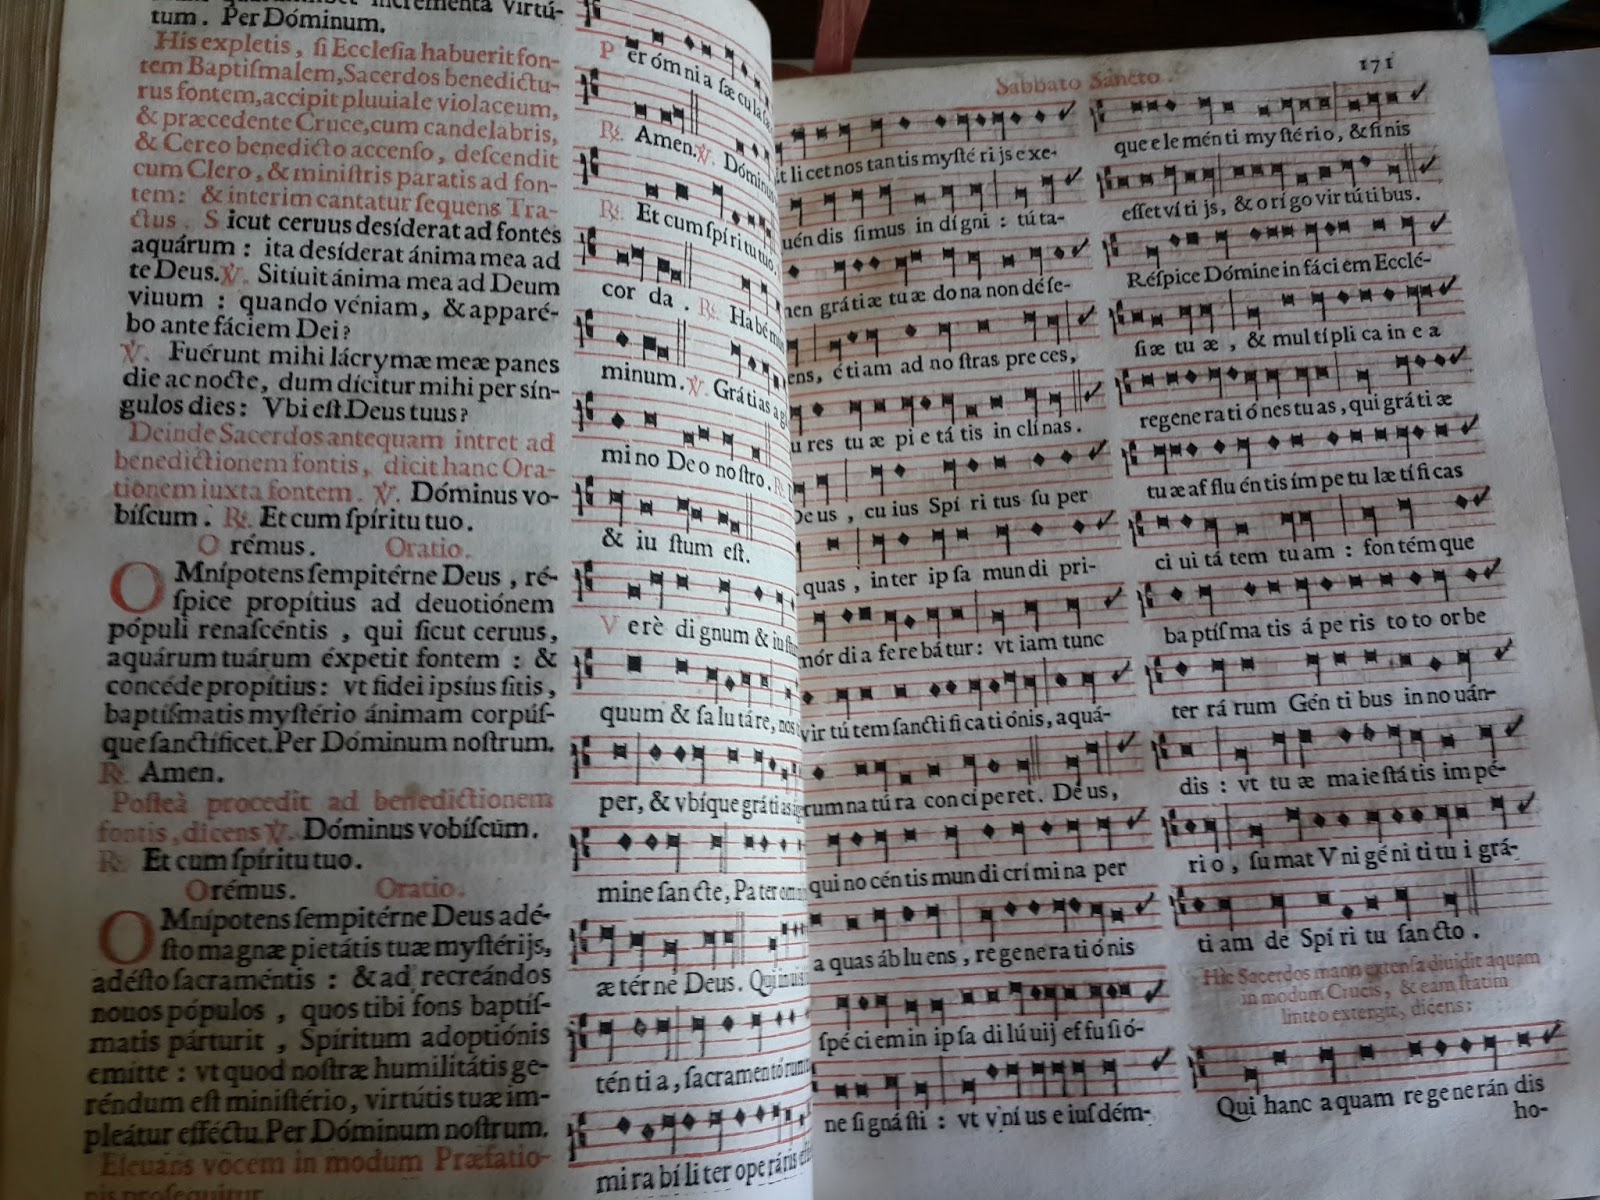 incrementa virtú-
tum. Per Dóminum.
His expletis, ſi Eccleſia habuerit fon-
tem Baptiſmalem, Sacerdos benedictu-
rus fontem, accipit pluuiale violaceum,
& præcedente Cruce, cum candelabris,
& Cereo benedicto accenſo, deſcendit
cum Clero, & miniſtris paratis ad fon-
tem: & interim cantatur ſequens Tra-
ctus. Sicut ceruus desíderat ad fontes
aquárum: ita desíderat ánima mea ad
te Deus. ℣. Sitíuit ánima mea ad Deum
viuum: quando véniam, & apparé-
bo ante fáciem Dei?
℣. Fuérunt mihi lácrymæ meæ panes
die ac nocte, dum dícitur mihi per sín-
gulos dies: Vbi eſt Deus tuus?
Deinde Sacerdos antequam intret ad
benedictionem fontis, dicit hanc Ora-
tionem iuxta fontem. ℣. Dóminus vo-
bíſcum. ℟. Et cum ſpíritu tuo.
Orémus. Oratio.
OMnípotens ſempitérne Deus, ré-
ſpice propítius ad deuotiónem
pópuli renaſcéntis, qui ſicut ceruus,
aquárum tuárum éxpetit fontem: &
concéde propítius: vt fidei ipsíus ſitis,
baptíſmatis myſtério ánimam corpúſ-
que ſanctíficet. Per Dóminum noſtrum.
℟. Amen.
Poſteà procedit ad benedictionem
fontis, dicens ℣. Dóminus vobíſcũm.
℟. Et cum ſpíritu tuo.
Orémus. Oratio.
OMnípotens ſempitérne Deus adé-
ſto magnæ pietátis tuæ myſtérijs,
adéſto ſacraméntis: & ad recreándos
nouos pópulos, quos tibi fons baptíſ-
matis párturit, Spíritum adoptiónis
emítte: vt quod noſtræ humilitátis ge-
réndum eſt miniſtério, virtútis tuæ im-
pleátur efféctu. Per Dóminum noſtrum.
Eleuans vocem in modum Præfatio-
nis proſequitur
Per ómnia ſæcula
℟. Amen. ℣. Dóminus
℟. Et cum ſpíritu tuo.
corda. ℟. Habémus
minum. ℣. Grátias
mino Deo noſtro.
& iuſtum eſt.
Verè dignum & iuſtum
quum & ſalutáre, nos
per, & vbíque grátias
mine ſancte, Pater
ætérne Deus. Qui
téntia, ſacramentórum
mirabíliter operáris
Sabbato Sancto. 171
licet nos tantis myſtérijs exe-
quéndis ſimus indígni: túta-
men grátiæ tuæ dona non déſe-
rens, étiam ad noſtras preces,
aures tuæ pietátis inclínas.
Deus, cuius Spíritus ſuper
aquas, inter ipſa mundi pri-
mórdia ferebátur: vt iam tunc
virtútem ſanctificatiónis, aquá-
rum natúra concíperet. Deus,
qui nocéntis mundi crímina per
aquas ábluens, regeneratiónis
ſpéciem in ipſa dilúuij effuſió-
ne ſignáſti: vt vníus eiuſdém-
que eleménti myſtério, & finis
eſſet vítijs, & orígo virtútibus.
Réſpice Dómine in fáciem Ecclé-
ſiæ tuæ, & multíplica in ea
regeneratiónes tuas, qui grátiæ
tuæ affluéntis ímpetu lætíficas
ciuitátem tuam: fontémque
baptíſmatis áperis toto orbe
terrárum Géntibus innouán-
dis: vt tuæ maieſtátis impé-
rio, ſumat Vnigéniti tui grá-
tiam de Spíritu ſancto.
Hîc Sacerdos manu extenſa diuidit aquam
in modum Crucis, & eam ſtatim
linteo extergit, dicens:
Qui hanc aquam regenerándis
ho-